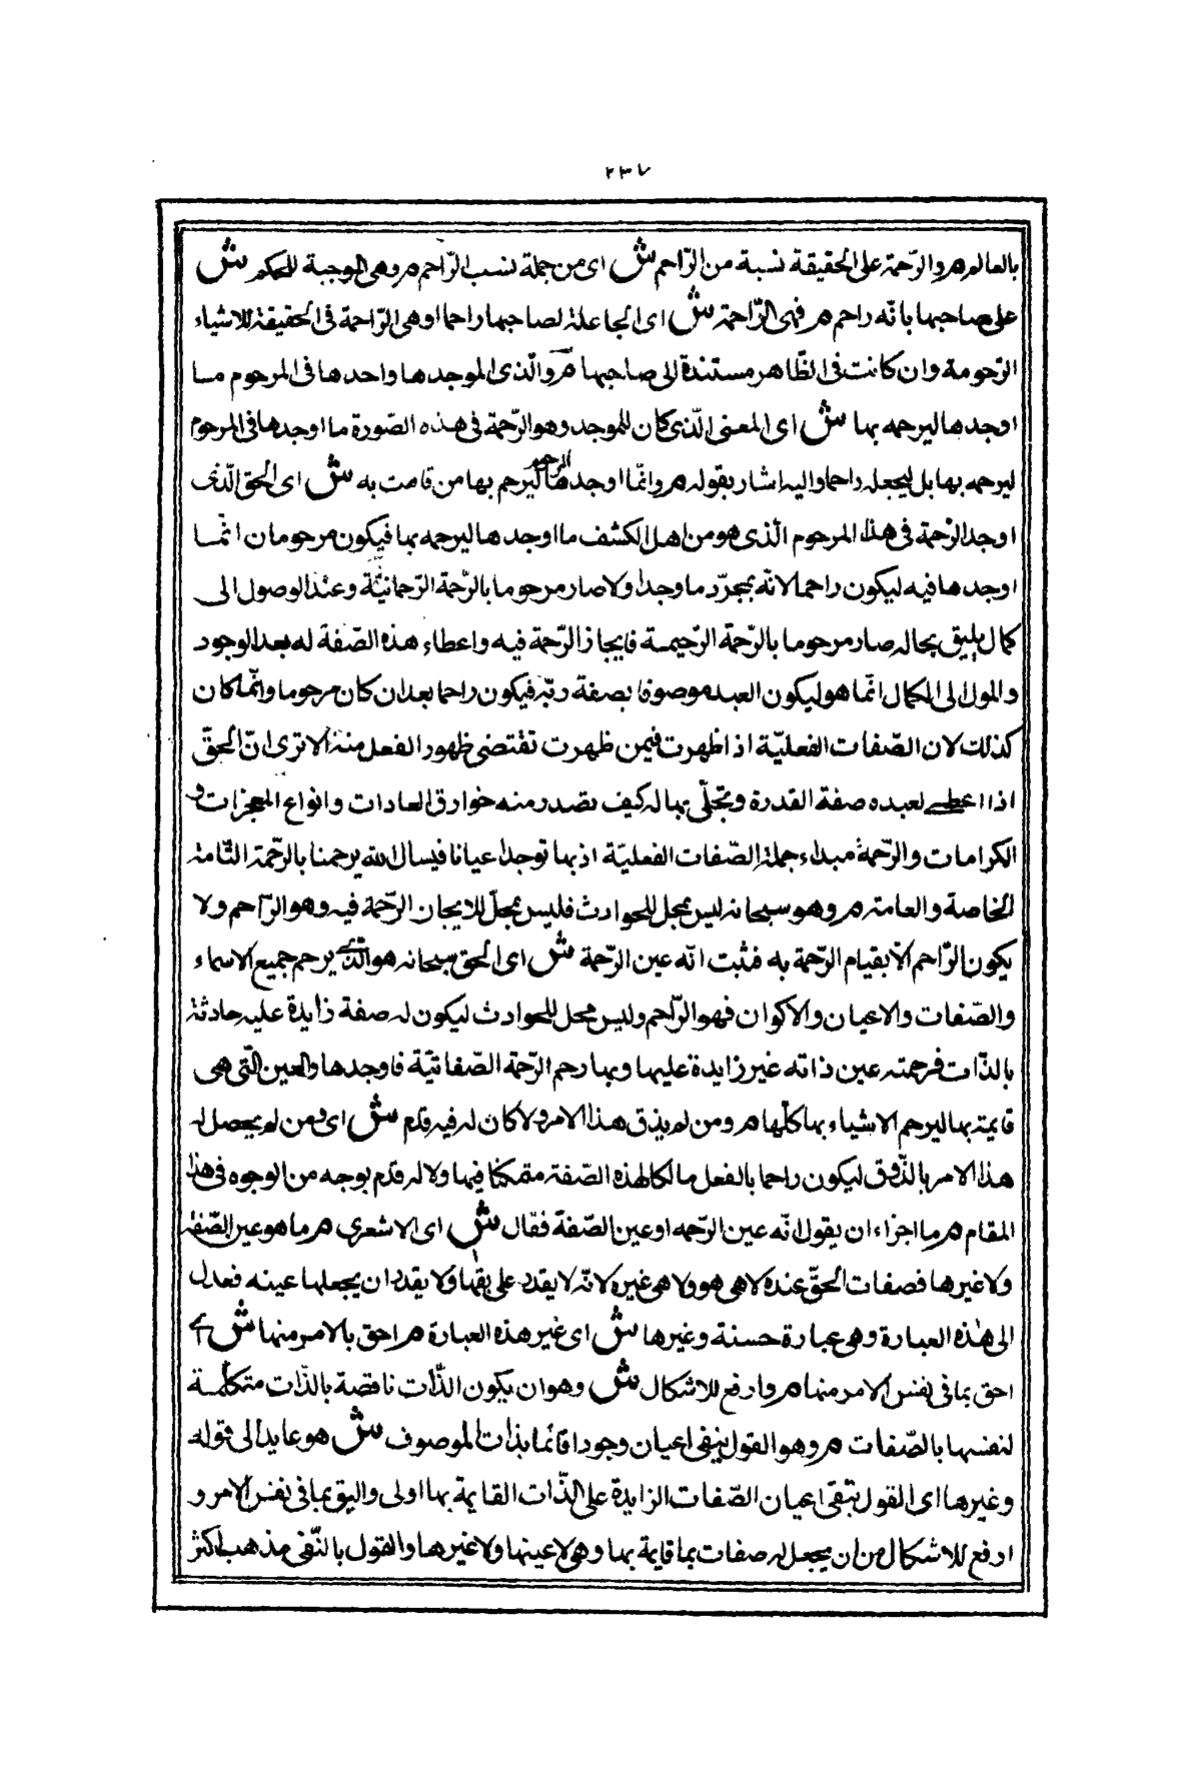 ٢٣٧
بالعالم م والرّحمة على الحقيقة نسبة من الرّاحم ش اى من جملة نسب الرّاحم م وهى الموجبة للحكم ش
على صاحبها بانّه راحم م فهى الرّاحمة ش اى الجاعلة لصاحبها راحما او هى الرّاحمة فى الحقيقة للاشياء
المرحومة وان كانت فى الظّاهر مستندة الى صاحبها م والّذى اوجدها فى المرحوم ما
اوجدها ليرحمه بها ش اى المعنى الّذى كان للموجد وهو الرّحمة فى هذه الصّورة ما اوجدها فى المرحوم
ليرحمه بها بل ليجعله راحما واليه اشار بقوله م وانّما اوجدها ليرحم بها من قامت به ش اى الحق الّذى
اوجد الرّحمة فى هذا المرحوم الّذى هو من اهل الكشف ما اوجدها ليرحمه بها فيكون مرحوما ن انّما
اوجدها فيه ليكون راحما لانّه بمجرّد ما وجد اولا صار مرحوما بالرّحمة الرّحمانيّة وعند الوصول الى
كمال يليق بحاله صار مرحوما بالرّحمة الرّحيمية فايجاد الرّحمة فيه واعطاء هذه الصّفة له بعد الوجود
والوصول الى الكمال انّما هو ليكون العبد موصوفا بصفة ربّه فيكون راحما بعد ان كان مرحوما وانّما كان
كذلك لان الصّفات الفعليّة اذا ظهرت فيمن ظهرت تقتضى ظهور الفعل منه الا ترى انّ الحقّ
اذا اعطى لعبده صفة القدرة وتجلّى بها له كيف تصدر منه خوارق العادات وانواع المعجزات و
الكرامات والرّحمة مبداء جملة الصّفات الفعليّة اذ بها توجد اعيانا فيسال الله يرحمنا بالرّحمة التّامة
الخاصة والعامة م وهو سبحانه ليس بمحل للحوادث فليس بمحلّ لايجاد الرّحمة فيه وهو الرّاحم ولا
يكون الرّاحم الّا بقيام الرّحمة به فثبت انّه عين الرّحمة ش اى الحق سبحانه هو الّذى يرحم جميع الاسماء
والصّفات والاعيان والاكوان فهو الرّاحم وليس محل للحوادث ليكون له صفة زايدة عليه حادثة
بالذّات فرحمته عين ذاته غير زايدة عليها وبها رحم الرّحمة الصّفاتيّة فاوجدها والعين الّتى هى
قايمة بها ليرحم الاشياء بها كلّها م ومن لم يذق هذا الامر ولا كان له فيه قدم ش اى ومن لم يحصل له
هذا الامر بالذّوق ليكون راحما بالفعل مالكا لهذه الصّفة متمكّنا فيها ولا له قدم بوجه من الوجوه فى هذا
المقام م ما اجتراء ان يقول انّه عين الرّحمه او عين الصّفة فقال ش اى الاشعرى م ما هو عين الصّفة
ولا غيرها فصفات الحقّ عنده لا هى هو ولا هى غيره لانّه لا يقدر على نفيها ولا يقدر ان يجعلها عينه فعدل
الى هذه العبارة وهى عبارة حسنة وغيرها ش اى غير هذه العبارة م احق بالامر منها ش اى
احق بما فى نفس الامر منها م وارفع للاشكال ش وهو ان يكون الذّات ناقصة بالذّات متكملة
لنفسها بالصّفات م وهو القول بنفى اعيان وجودا قائما بذات الموصوف ش هو عايد الى قوله
وغيرها اى القول بنفى اعيان الصّفات الزايدة على الذّات القايمة بها اولى واليق بما فى نفس الامر و
ارفع للاشكال من ان يجعل له صفات بها قايمة بها وهى لا عينها ولا غيرها والقول بالنّفى مذهب اكثر